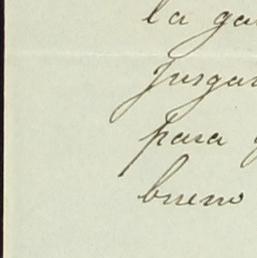 la ga
Jusga
para
bueno